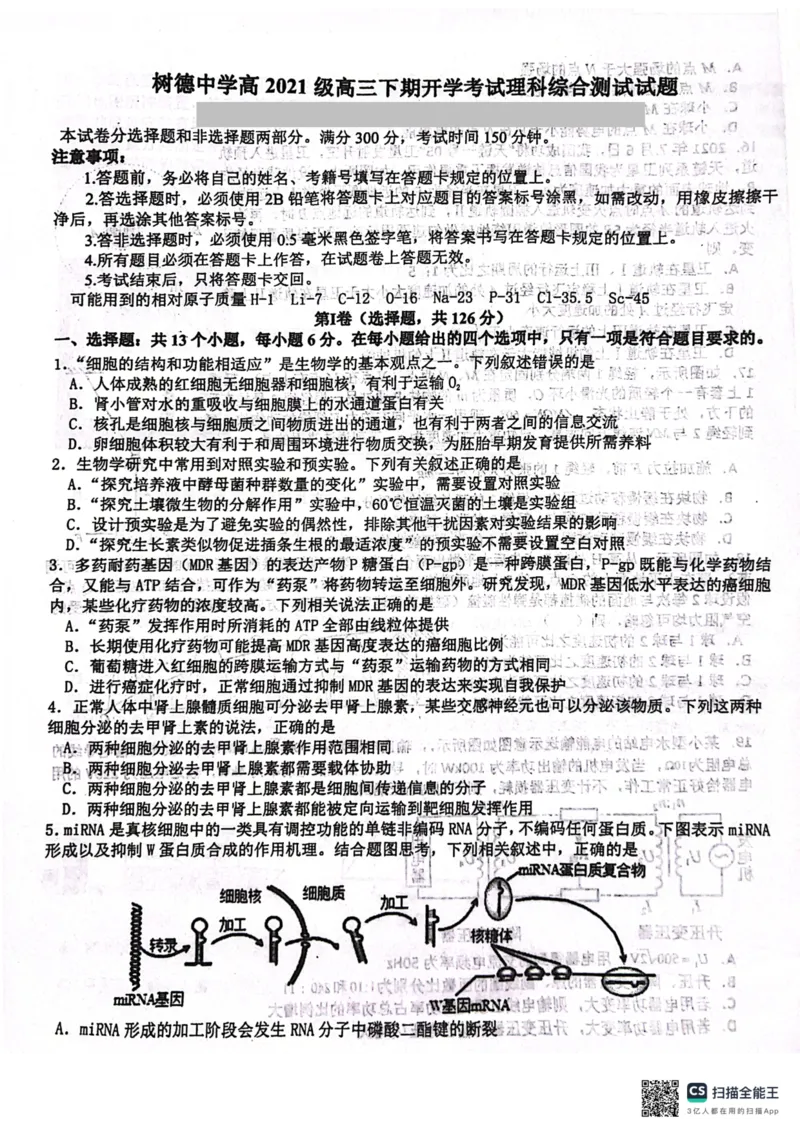 树德中学高 2021 级高三下期开学考试理科综合测试试题
本试卷分选择题和非选择题两部分。满分 300 分，考试时间 150 分钟。
注意事项：
1.答题前，务必将自己的姓名、考籍号填写在答题卡规定的位置上。
2.答选择题时，必须使用 2B 铅笔将答题卡上对应题目的答案标号涂黑，如需改动，用橡皮擦擦干
净后，再选涂其他答案标号。
3.答非选择题时，必须使用 0.5 毫米黑色签字笔，将答案书写在答题卡规定的位置上。
4.所有题目必须在答题卡上作答，在试题卷上答题无效。
5.考试结束后，只将答题卡交回。
可能用到的相对原子质量 H-1 Li-7 C-12 O-16 Na-23 P-31 Cl-35.5 Sc-45
第I卷（选择题，共 126 分）
一、选择题：共 13 个小题，每小题 6 分。在每小题给出的四个选项中，只有一项是符合题目要求的。
1.“细胞的结构和功能相适应”是生物学的基本观点之一。下列叙述错误的是
A. 人体成熟的红细胞无细胞器和细胞核，有利于运输 O₂
B. 肾小管对水的重吸收与细胞膜上的水通道蛋白有关
C. 核孔是细胞核与细胞质之间物质进出的通道，也有利于两者之间的信息交流
D. 卵细胞体积较大有利于和周围环境进行物质交换，为胚胎早期发育提供所需养料
2. 生物学研究中常用到对照实验和预实验。下列有关叙述正确的是
A.“探究培养液中酵母菌种群数量的变化”实验中，需要设置对照实验
B.“探究土壤微生物的分解作用”实验中，60℃恒温灭菌的土壤是实验组
C. 设计预实验是为了避免实验的偶然性，排除其他干扰因素对实验结果的影响
D.“探究生长素类似物促进插条生根的最适浓度”的预实验不需要设置空白对照
3. 多药耐药基因（MDR 基因）的表达产物 P 糖蛋白（P-gp）是一种跨膜蛋白，P-gp 既能与化学药物结
合，又能与 ATP 结合，可作为“药泵”将药物转运至细胞外。研究发现，MDR 基因低水平表达的癌细胞
内，某些化疗药物的浓度较高。下列相关说法正确的是
A.“药泵”发挥作用时所消耗的 ATP 全部由线粒体提供
B. 长期使用化疗药物可能提高 MDR 基因高度表达的癌细胞比例
C. 葡萄糖进入红细胞的跨膜运输方式与“药泵”运输药物的方式相同
D. 进行癌症化疗时，正常细胞通过抑制 MDR 基因的表达来实现自我保护
4. 正常人体中肾上腺髓质细胞可分泌去甲肾上腺素，某些交感神经元也可以分泌该物质。下列这两种
细胞分泌的去甲肾上素的说法，正确的是
A. 两种细胞分泌的去甲肾上腺素作用范围相同
B. 两种细胞分泌去甲肾上腺素都需要载体协助
C. 两种细胞分泌的去甲肾上腺素都是细胞间传递信息的分子
D. 两种细胞分泌的去甲肾上腺素都能被定向运输到靶细胞发挥作用
5.miRNA 是真核细胞中的一类具有调控功能的单链非编码 RNA 分子，不编码任何蛋白质。下图表示 miRNA
形成以及抑制 W 蛋白质合成的作用机理。结合题图思考，下列相关叙述中，正确的是
miRNA蛋白质复合物
细胞核
细胞质
加工
加工
转录
核糖体
miRNA基因
W基因mRNA
A. miRNA 形成的加工阶段会发生 RNA 分子中磷酸二酯键的断裂
CS 扫描全能王
3亿人都在用的扫描App